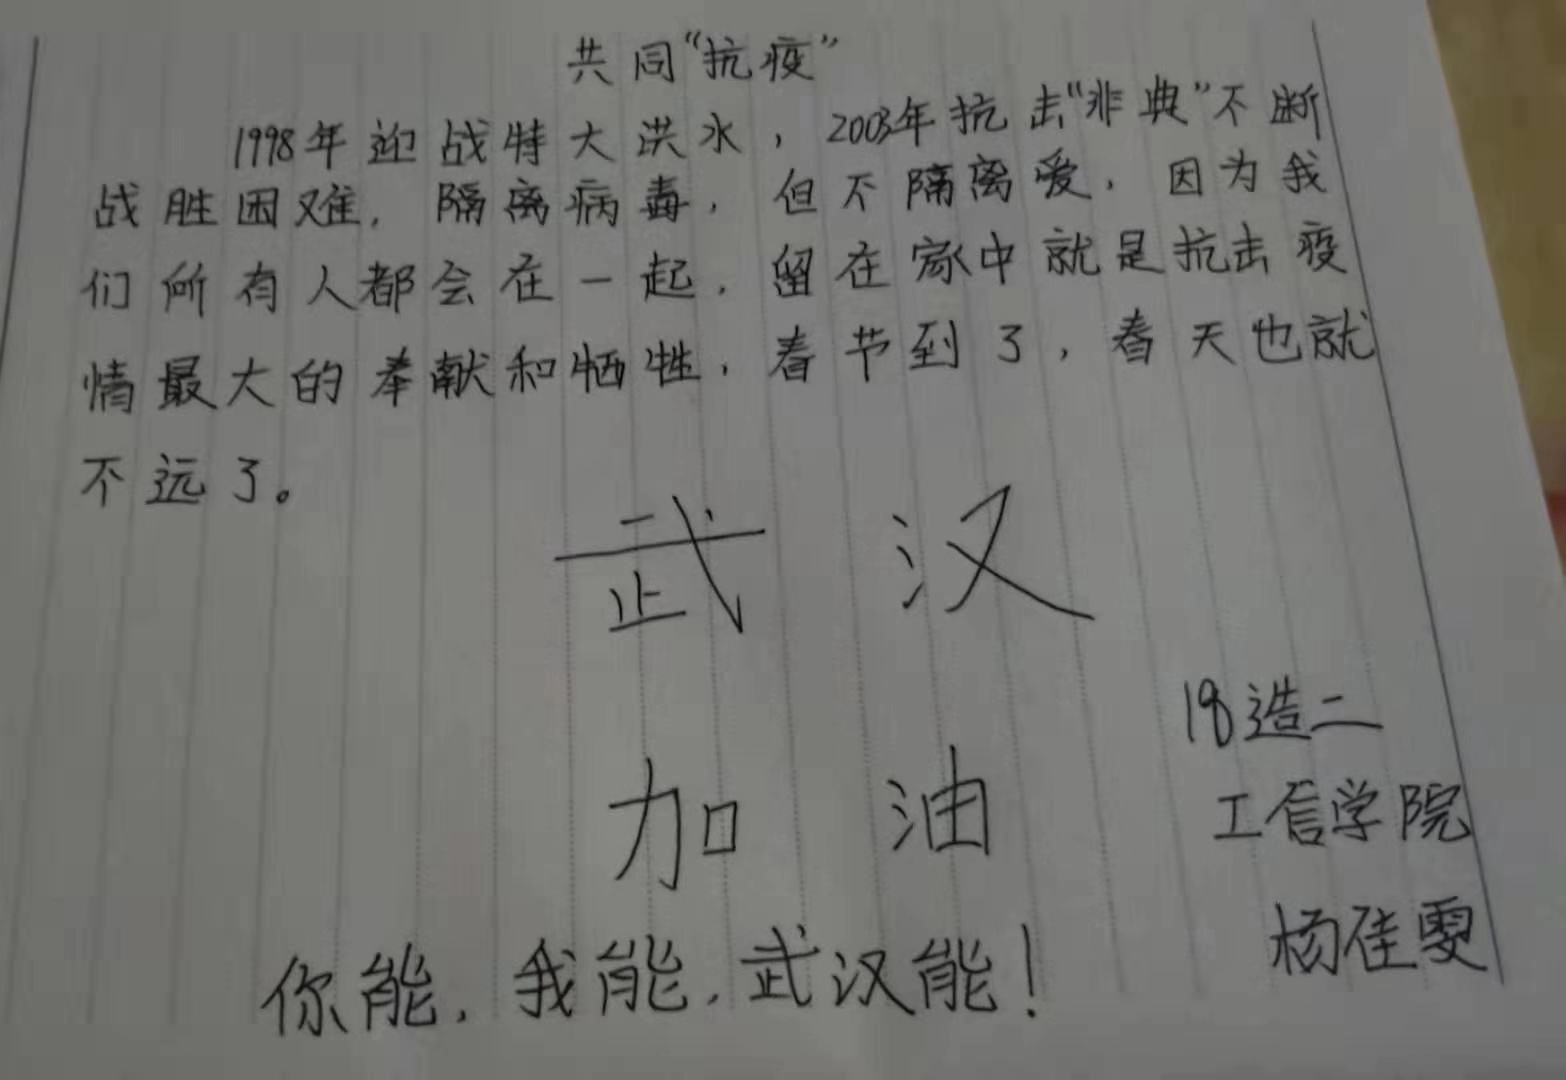 共同“抗疫”
1998年迎战特大洪水，2003年抗击“非典”不断
战胜困难，隔离病毒，但不隔离爱，因为我
们所有人都会在一起，留在家中就是抗击疫
情最大的奉献和牺牲，春节到了，春天也就
不远了。
武汉
加油
18造二
工信学院
杨佳雯
你能，我能，武汉能！